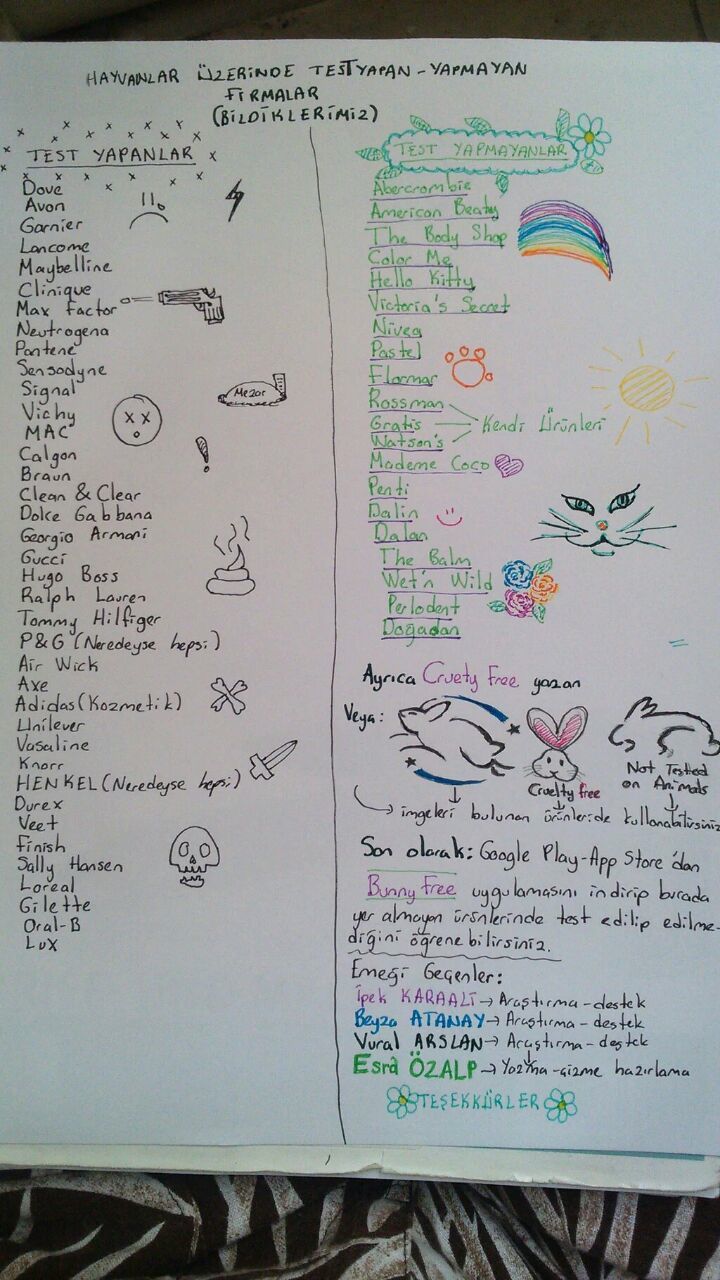 HAYVANLAR ÜZERİNDE TEST YAPAN - YAPMAYAN
FİRMALAR
(BİLDİKLERİMİZ)
TEST YAPANLAR
Dove
Avon
Garnier
Lancome
Maybelline
Clinique
Max Factor
Neutrogena
Pantene
Sensodyne
Signal
Mezar
Vichy
MAC
Calgon
Braun
Clean & Clear
Dolce Gabbana
Georgio Armani
Gucci
Hugo Boss
Ralph Lauren
Tommy Hilfiger
P&G (Neredeyse hepsi)
Air Wick
Axe
Adidas (Kozmetik)
Unilever
Vasaline
Knorr
HENKEL (Neredeyse hepsi)
Durex
Veet
Finish
Sally Hansen
Loreal
Gilette
Oral-B
Lux
TEST YAPMAYANLAR
Abercrombie
American Beaty
The Body Shop
Color Me
Hello Kitty
Victoria's Secret
Nivea
Pastel
Flormar
Rossman
Gratis
Watson's
Kendi Ürünleri
Mademe Coco
Penti
Dalin
Dalan
The Balm
Wet'n Wild
Perlodent
Doğadan
Ayrıca Cruety Free yazan
Veya:
Cruelty free
Not Tested
on Animals
imgeleri bulunan ürünleride kullanabilirsiniz
Son olarak: Google Play-App Store'dan
Bunny Free uygulamasını indirip burada
yer almayan ürünlerinde test edilip edilme-
diğini öğrenebilirsiniz.
Emeği Geçenler:
İpek KARAALİ → Araştırma-destek
Beyza ATANAY → Araştırma-destek
Vural ARSLAN → Araştırma-destek
Esra ÖZALP → Yazma-çizme hazırlama
TEŞEKKÜRLER